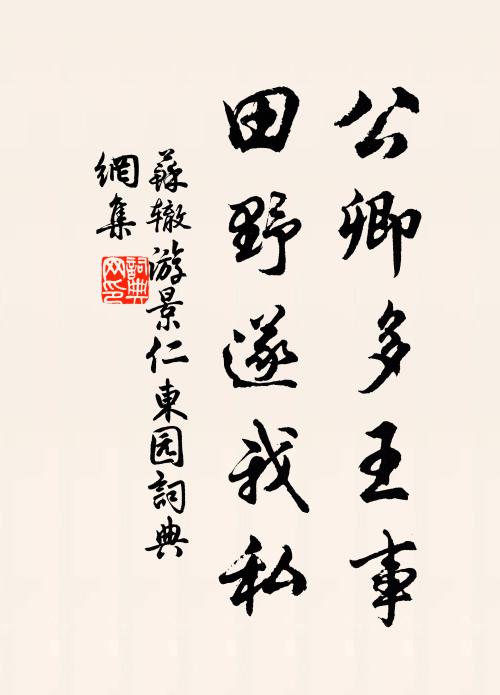 公卿多王事
田野遂我私
蘇辙游景仁東园詞典
網集
詞典网印